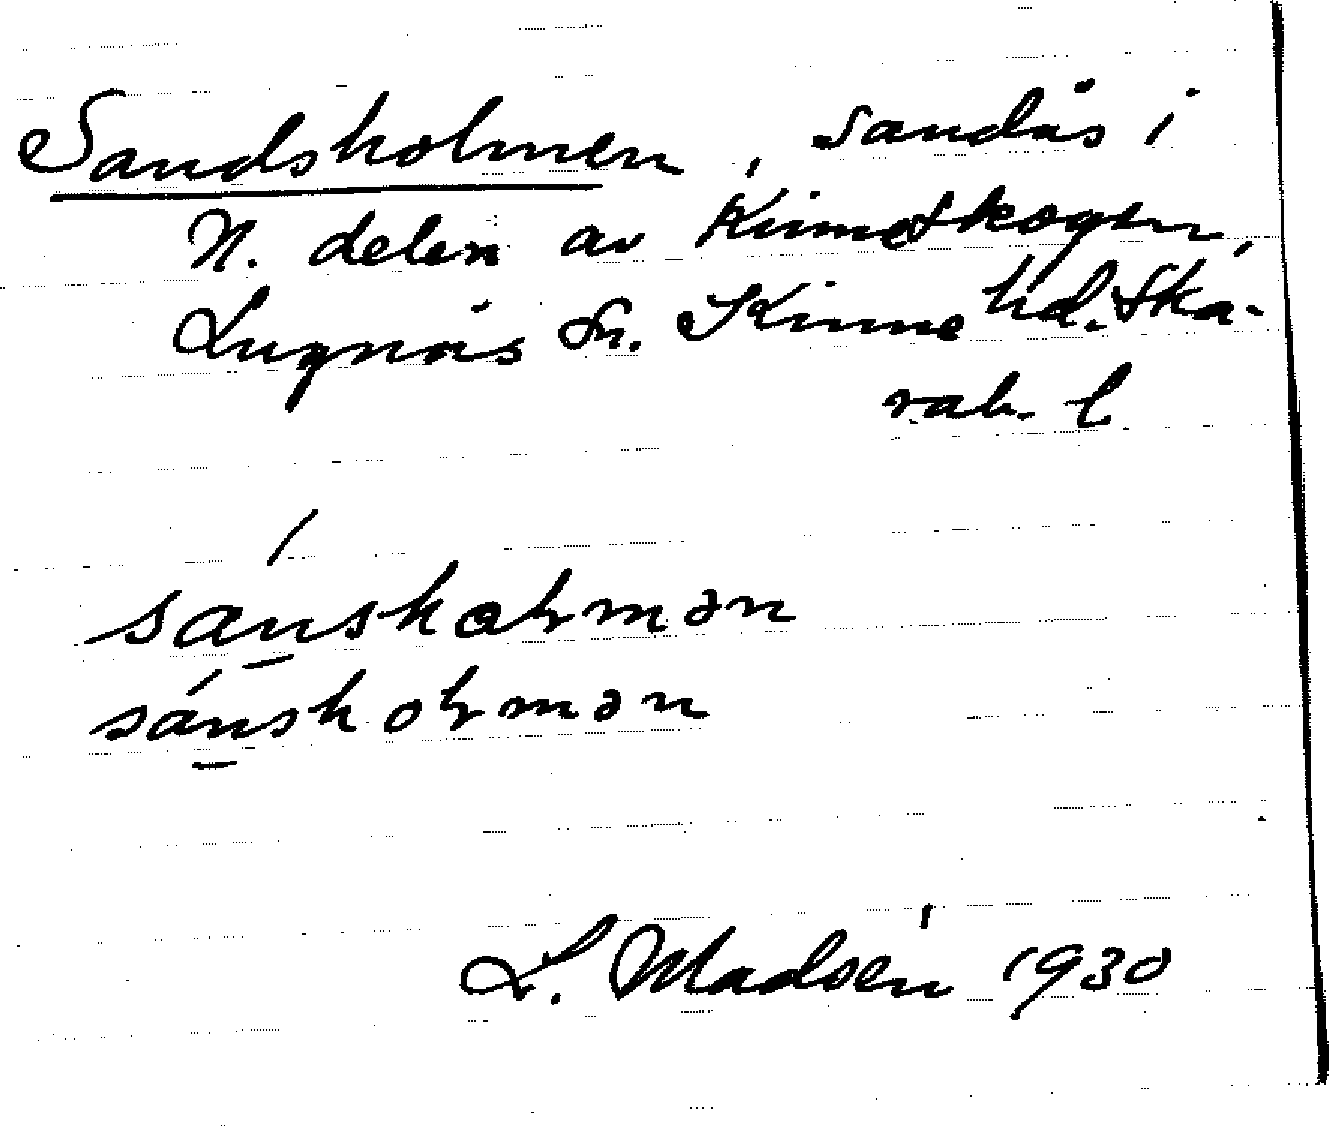 Sandsholmen, sandås i
N. delen av Kinneskogen,
Lugnås Sn. Kinne hd. Ska-
rab. l
sánshoḷmən
sánshoḷmən
L. Madsén 1930